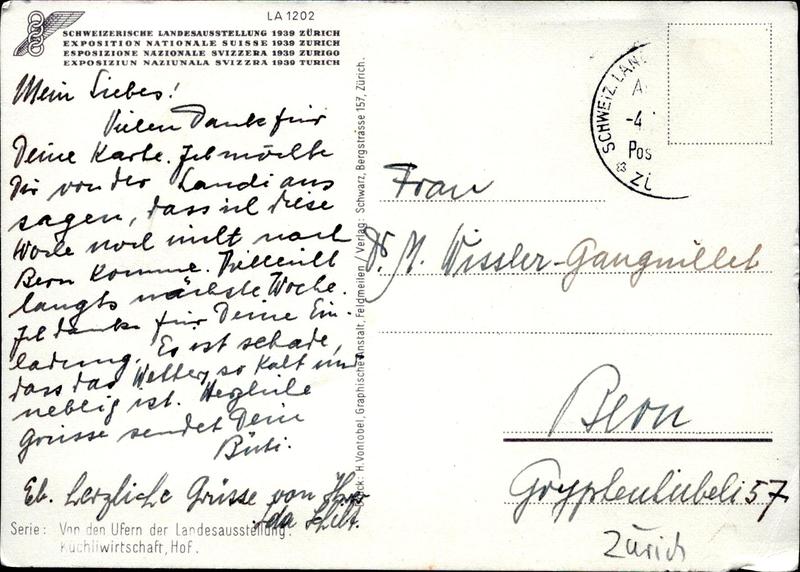 LA 1202
SCHWEIZERISCHE LANDESAUSSTELLUNG 1939 ZÜRICH
EXPOSITION NATIONALE SUISSE 1939 ZURICH
ESPOSIZIONE NAZIONALE SVIZZERA 1939 ZURIGO
EXPOSIZIUN NAZIUNALA SVIZZRA 1939 TURICH
Mein Liebes!
Vielen Dank für
Deine Karte. Ich möchte
Dir von der Landi aus
sagen, dass ich diese
Woche noch nicht nach
Bern komme. Vielleicht
langts nächste Woche.
Ich danke für Deine Ein-
ladung. Es ist schade,
dass das Wetter so kalt und
neblig ist. Herzliche
Grüsse sendet Dein
Büti.
Eb. herzliche Grüsse von
Ida
Serie: Von den Ufern der Landesausstellung.
Küchliwirtschaft, Hof.
Druck: H. Vontobel, Graphische Anstalt, Feldmeilen / Verlag: Schwarz, Bergstrasse 157, Zürich.
SCHWEIZ. LAN
-4
Pos
Frau
Dr. M. Wissler-Gangnillet
Bern
Gryphenhübeli 57
Zürich